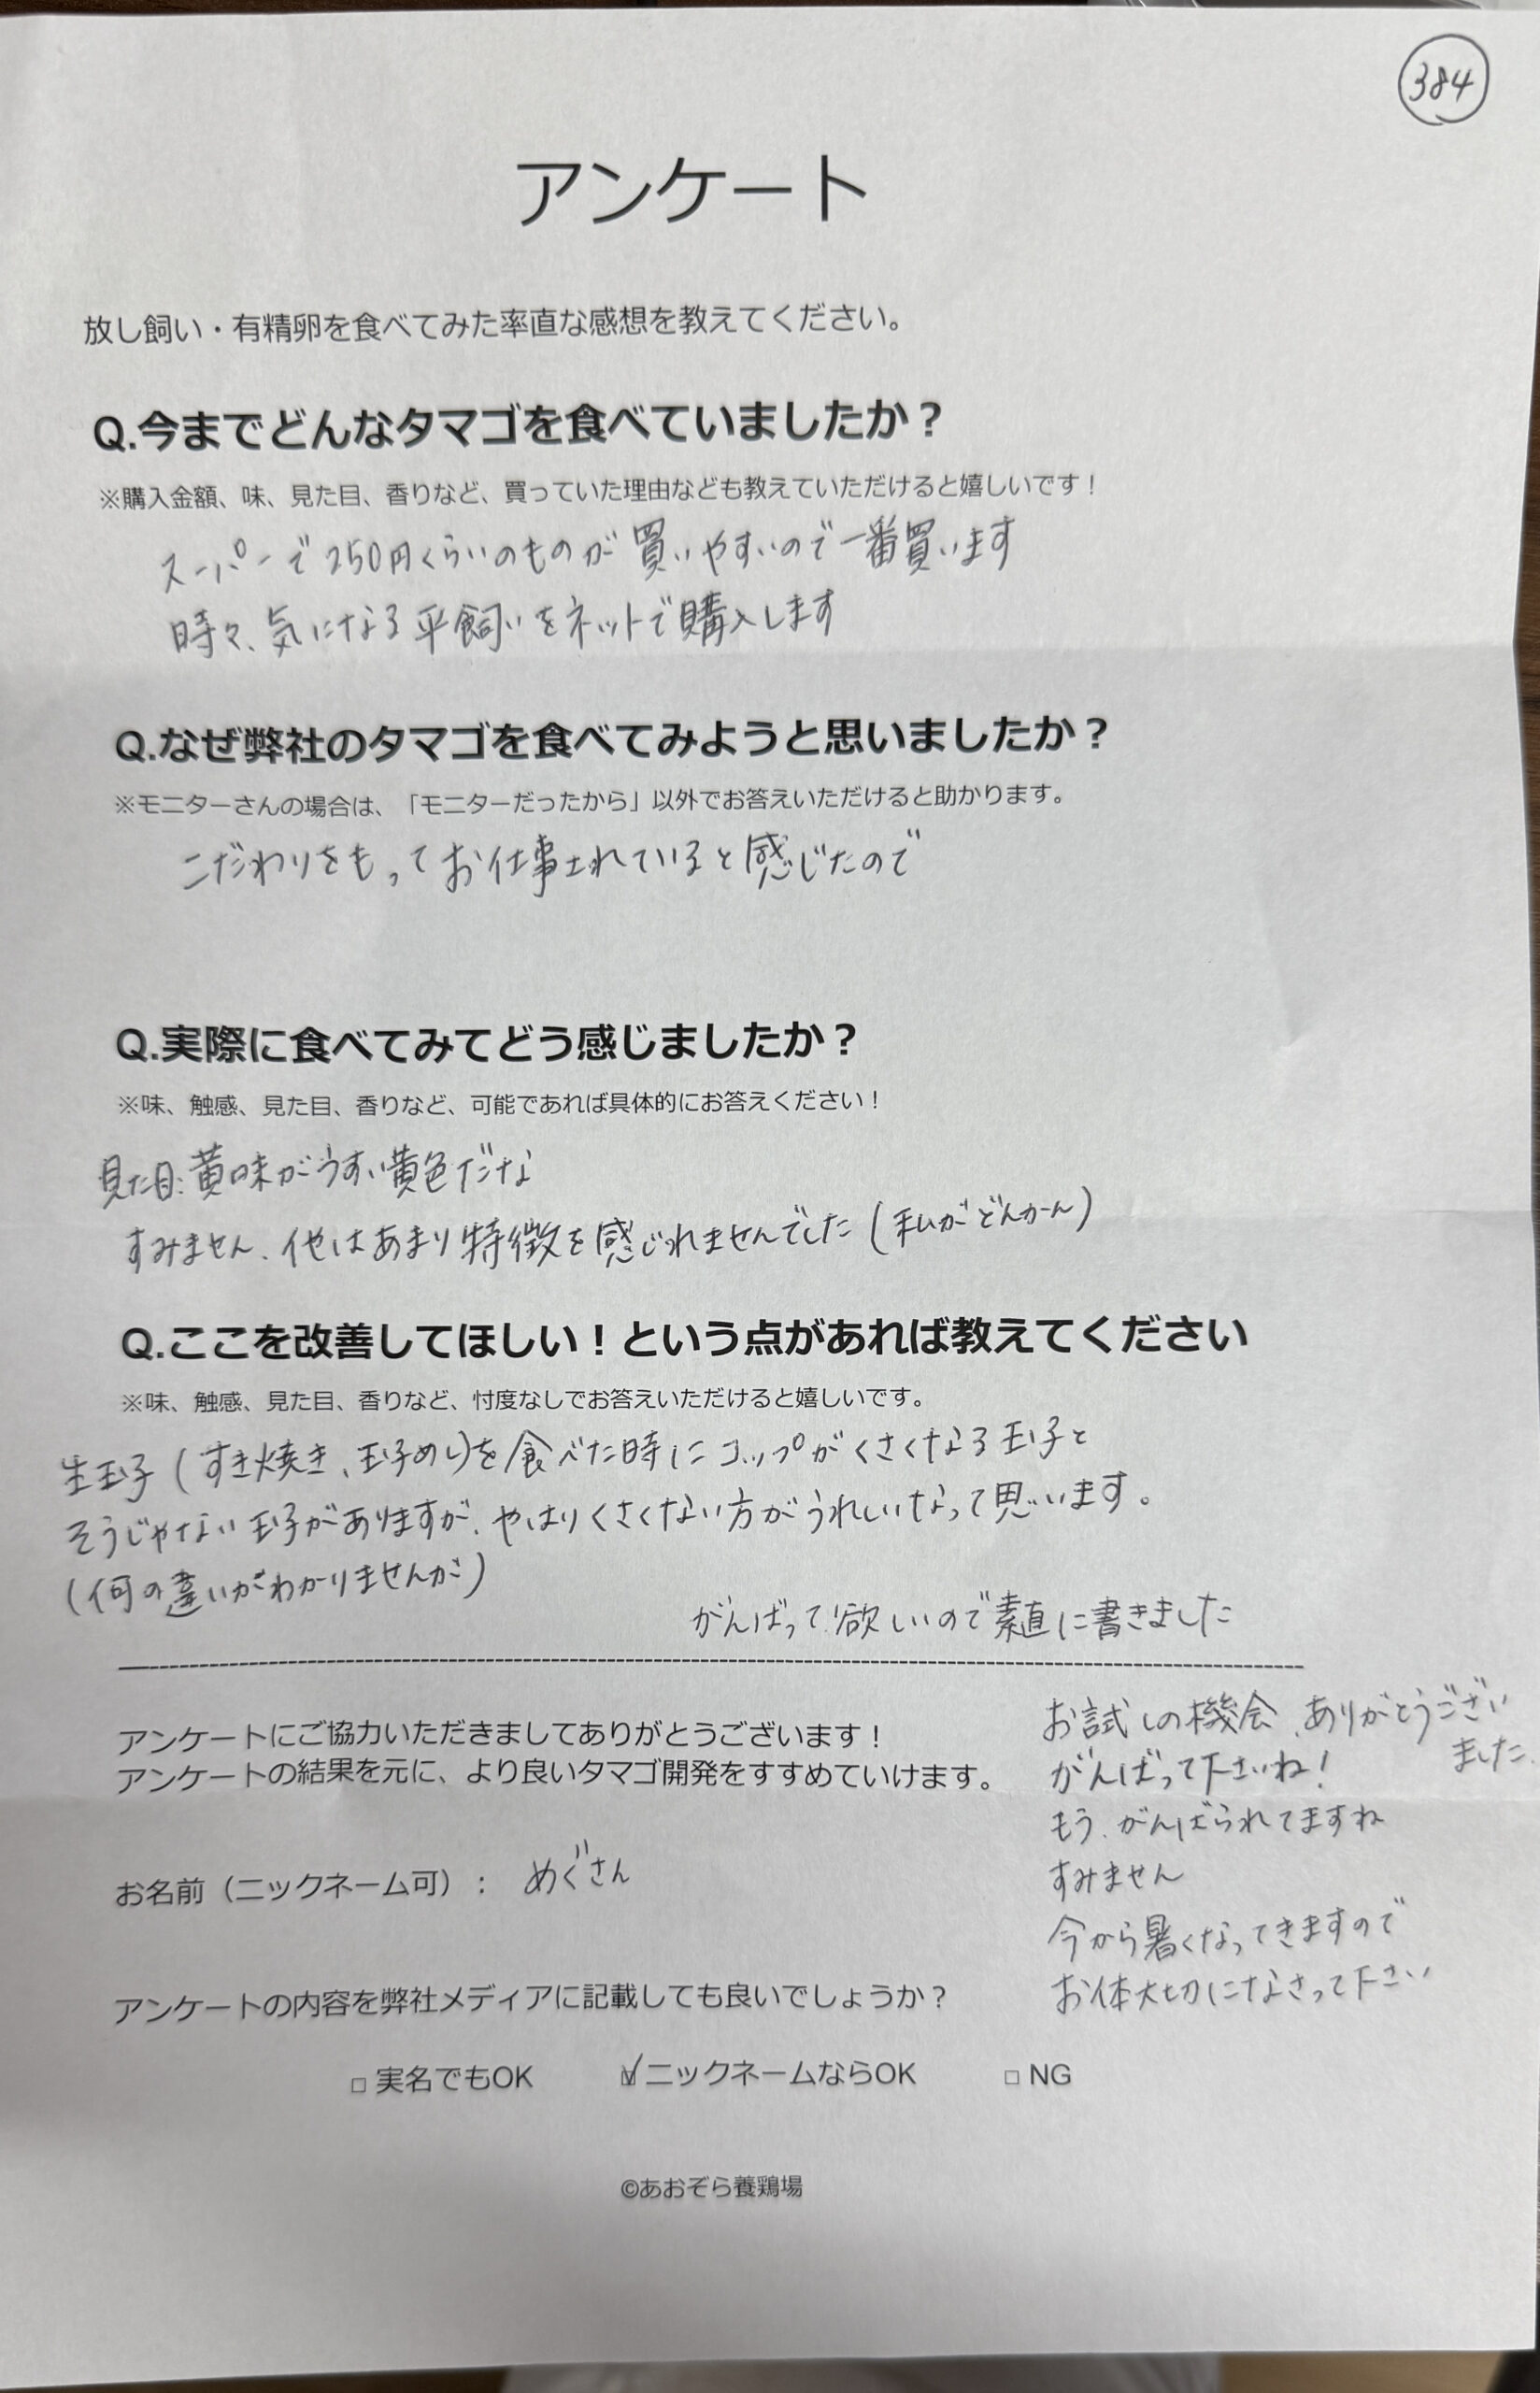 384
アンケート
放し飼い・有精卵を食べてみた率直な感想を教えてください。
Q.今までどんなタマゴを食べていましたか？
※購入金額、味、見た目、香りなど、買っていた理由なども教えていただけると嬉しいです！
スーパーで250円くらいのものが買いやすいので一番買います
時々、気になる平飼いをネットで購入します
Q.なぜ弊社のタマゴを食べてみようと思いましたか？
※モニターさんの場合は、「モニターだったから」以外でお答えいただけると助かります。
こだわりをもってお仕事されていると感じたので
Q.実際に食べてみてどう感じましたか？
※味、触感、見た目、香りなど、可能であれば具体的にお答えください！
見た目：黄味がうすい黄色だな
すみません、他はあまり特徴を感じれませんでした（私がどんかん）
Q.ここを改善してほしい！という点があれば教えてください
※味、触感、見た目、香りなど、忖度なしでお答えいただけると嬉しいです。
生玉子（すき焼き、玉子めし）を食べた時にコップがくさくなる玉子と
そうじゃない玉子がありますが、やはりくさくない方がうれしいなって思います。
（何の違いかわかりませんが）
がんばって欲しいので素直に書きました
アンケートにご協力いただきましてありがとうございます！
アンケートの結果を元に、より良いタマゴ開発をすすめていけます。
お試しの機会、ありがとうござい
ました。
がんばって下さいね！
もう、がんばられてますね
すみません
今から暑くなってきますので
お体大切になさって下さい
お名前（ニックネーム可）： めぐさん
アンケートの内容を弊社メディアに記載しても良いでしょうか？
□ 実名でもOK ☑ ニックネームならOK □ NG
©あおぞら養鶏場